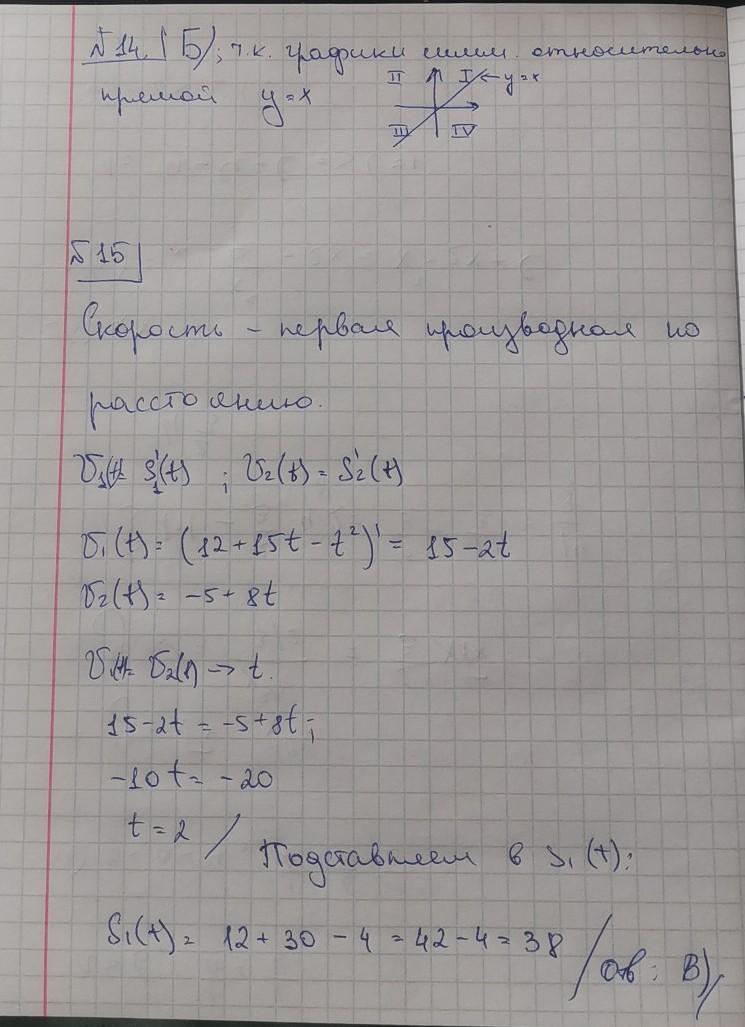 №14. Б); т.к. графики симм. относительно
прямой y=x
II I ← y=x
III IV
№15
Скорость – первая производная по
расстоянию.
V₁(t)= S₁'(t) ; V₂(t) = S₂'(t)
V₁(t) = (12+15t – t²)' = 15–2t
V₂(t) = –5+8t
V₁(t)= V₂(t) → t.
15–2t = –5+8t;
–10t = –20
t = 2 / Подставляем в S₁(t):
S₁(t) = 12+30 – 4 = 42–4 = 38 / ов: В)